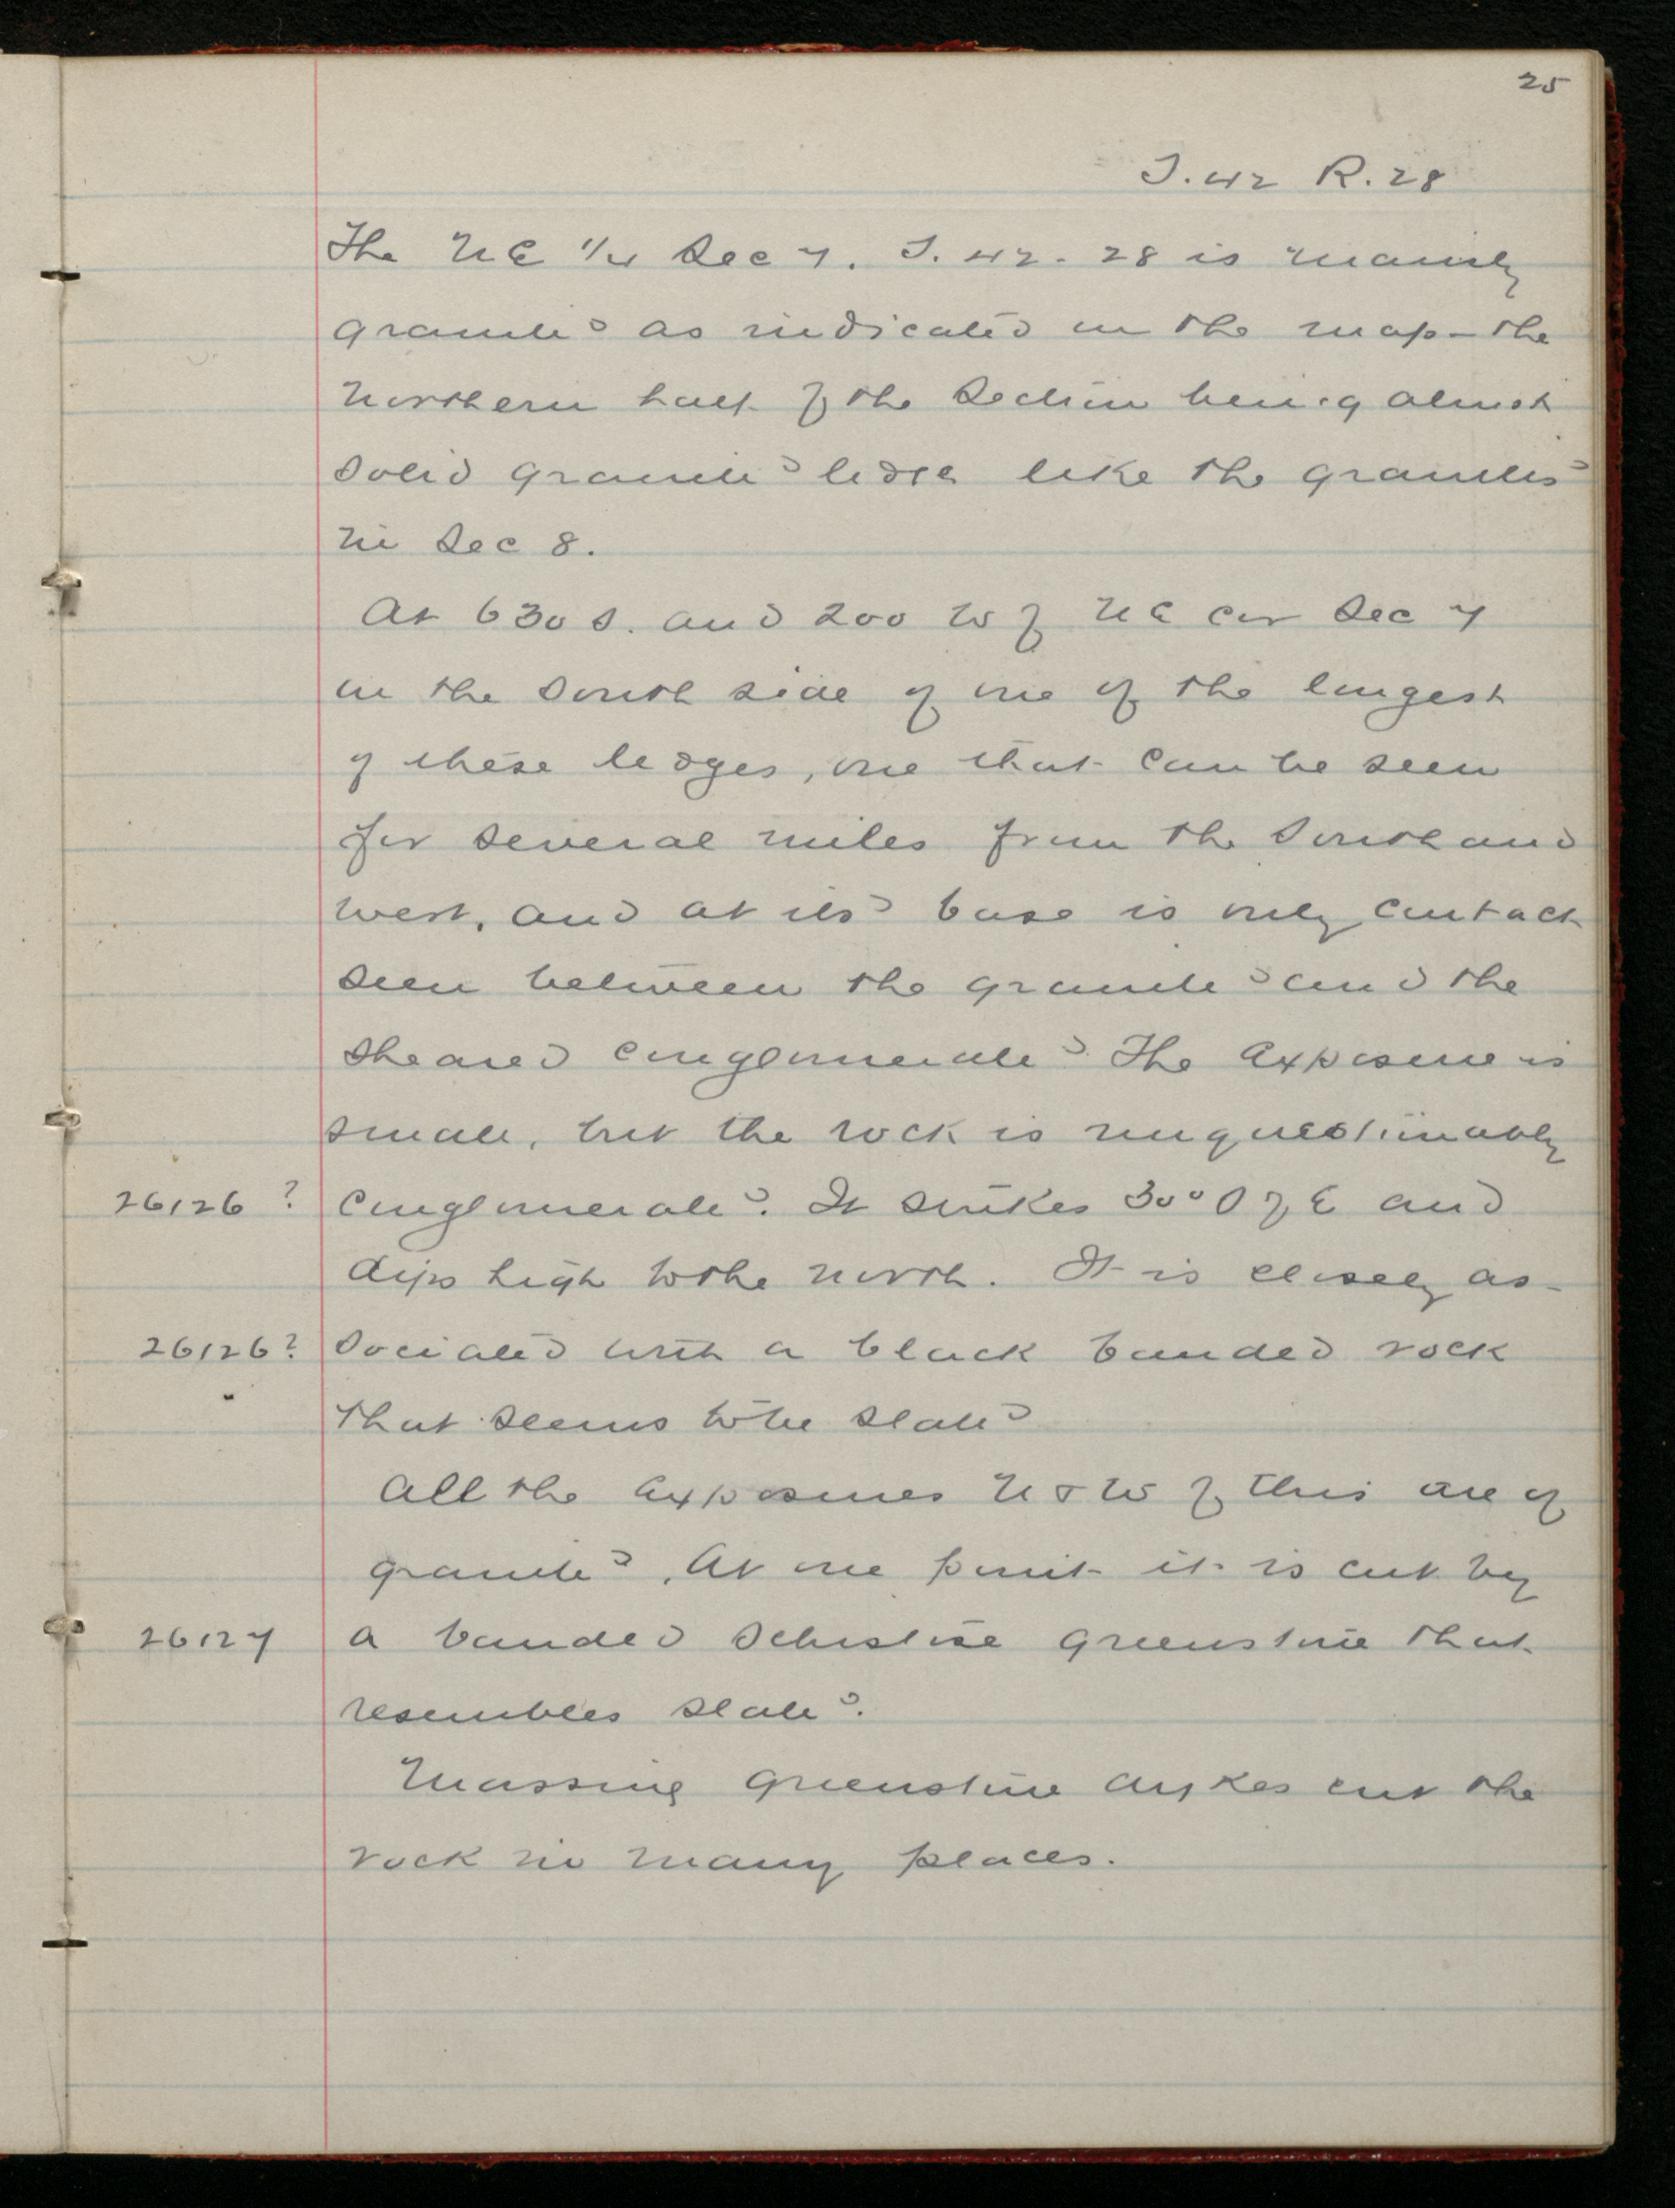 25
T. 42 R. 28
The NE 1/4 Sec 7. T. 42. 28 is mainly
granite as indicated on the map - the
Northern half of the Section being almost
solid granite ledge like the granites
in Sec 8.
At 630 S. and 200 W of NE cor Sec 7
on the South side of one of the longest
of these ledges, one that can be seen
for several miles from the South and
West, and at its base is only contact
seen between the granite and the
sheared conglomerate. The exposure is
small, but the rock is unquestionably
26126 ? conglomerate. It strikes 30° S of E and
dips high to the north. It is closely as-
26126? sociated with a black banded rock
that seems to be slate
All the exposures N & W of this are of
granite. At one point it is cut by
26127 a banded schistose greenstone that
resembles slate.
Massive greenstone dykes cut the
rock in many places.